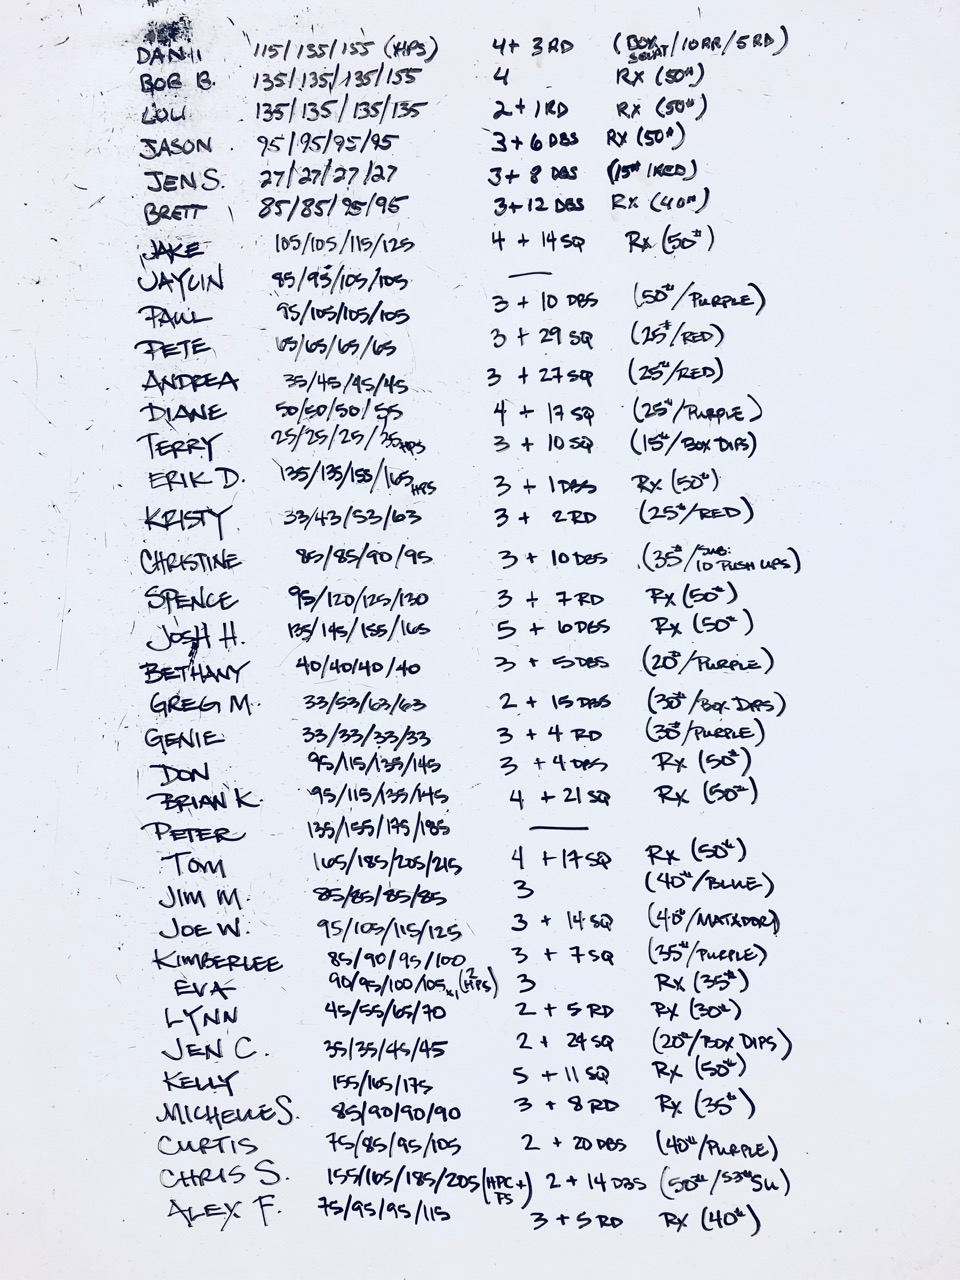 DANI 115/135/155 (HPS) 4+ 3 RD (BOX SQUAT/10RR/5RD)
BOB B. 135/135/135/155 4 Rx (50#)
LOU 135/135/135/135 2+1RD Rx (50#)
JASON 95/95/95/95 3+6 DBS Rx (50#)
JEN S. 27/27/27/27 3+ 8 DBS (15#/RED)
BRETT 85/85/95/95 3+12 DBS Rx (40#)
JAKE 105/105/115/125 4 + 14 SQ Rx (50#)
JAYLIN 85/95/105/105 —
PAUL 95/105/105/105 3 + 10 DBS (50#/PURPLE)
PETE 65/65/65/65 3 + 29 SQ (25#/RED)
ANDREA 35/45/45/45 3 + 27 SQ (25#/RED)
DIANE 50/50/50/55 4 + 17 SQ (25#/PURPLE)
TERRY 25/25/25/35 HPS 3 + 10 SQ (15#/BOX DIPS)
ERIK D. 135/135/155/165 HPS 3 + 1 DBS Rx (50#)
KRISTY 33/43/53/63 3 + 2 RD (25#/RED)
CHRISTINE 85/85/90/95 3 + 10 DBS (35#/SUB: 10 PUSH UPS)
SPENCE 95/120/125/130 3 + 7 RD Rx (50#)
JOSH H. 135/145/155/165 5 + 6 DBS Rx (50#)
BETHANY 40/40/40/40 3 + 5 DBS (20#/PURPLE)
GREG M. 33/53/63/63 2 + 15 DBS (30#/BOX DIPS)
GENIE 33/33/33/33 3 + 4 RD (30#/PURPLE)
DON 95/115/135/145 3 + 4 DBS Rx (50#)
BRIAN K. 95/115/135/145 4 + 21 SQ Rx (50#)
PETER 135/155/175/185 —
TOM 165/185/205/215 4 + 17 SQ Rx (50#)
JIM M. 85/85/85/85 3 (40#/BLUE)
JOE W. 95/105/115/125 3 + 14 SQ (40#/MATADOR)
KIMBERLEE 85/90/95/100 3 + 7 SQ (35#/PURPLE)
EVA 90/95/100/105 x1 (2 HPS) 3 Rx (35#)
LYNN 45/55/65/70 2 + 5 RD Rx (30#)
JEN C. 35/35/45/45 2 + 24 SQ (20#/BOX DIPS)
KELLY 155/165/175 5 + 11 SQ Rx (50#)
MICHELLE S. 85/90/90/90 3 + 8 RD Rx (35#)
CURTIS 75/85/95/105 2 + 20 DBS (40#/PURPLE)
CHRIS S. 155/165/185/205 (HPC + FS) 2 + 14 DBS (50#/53#
ALEX F. 75/95/95/115 3 + 5 RD Rx (40#)